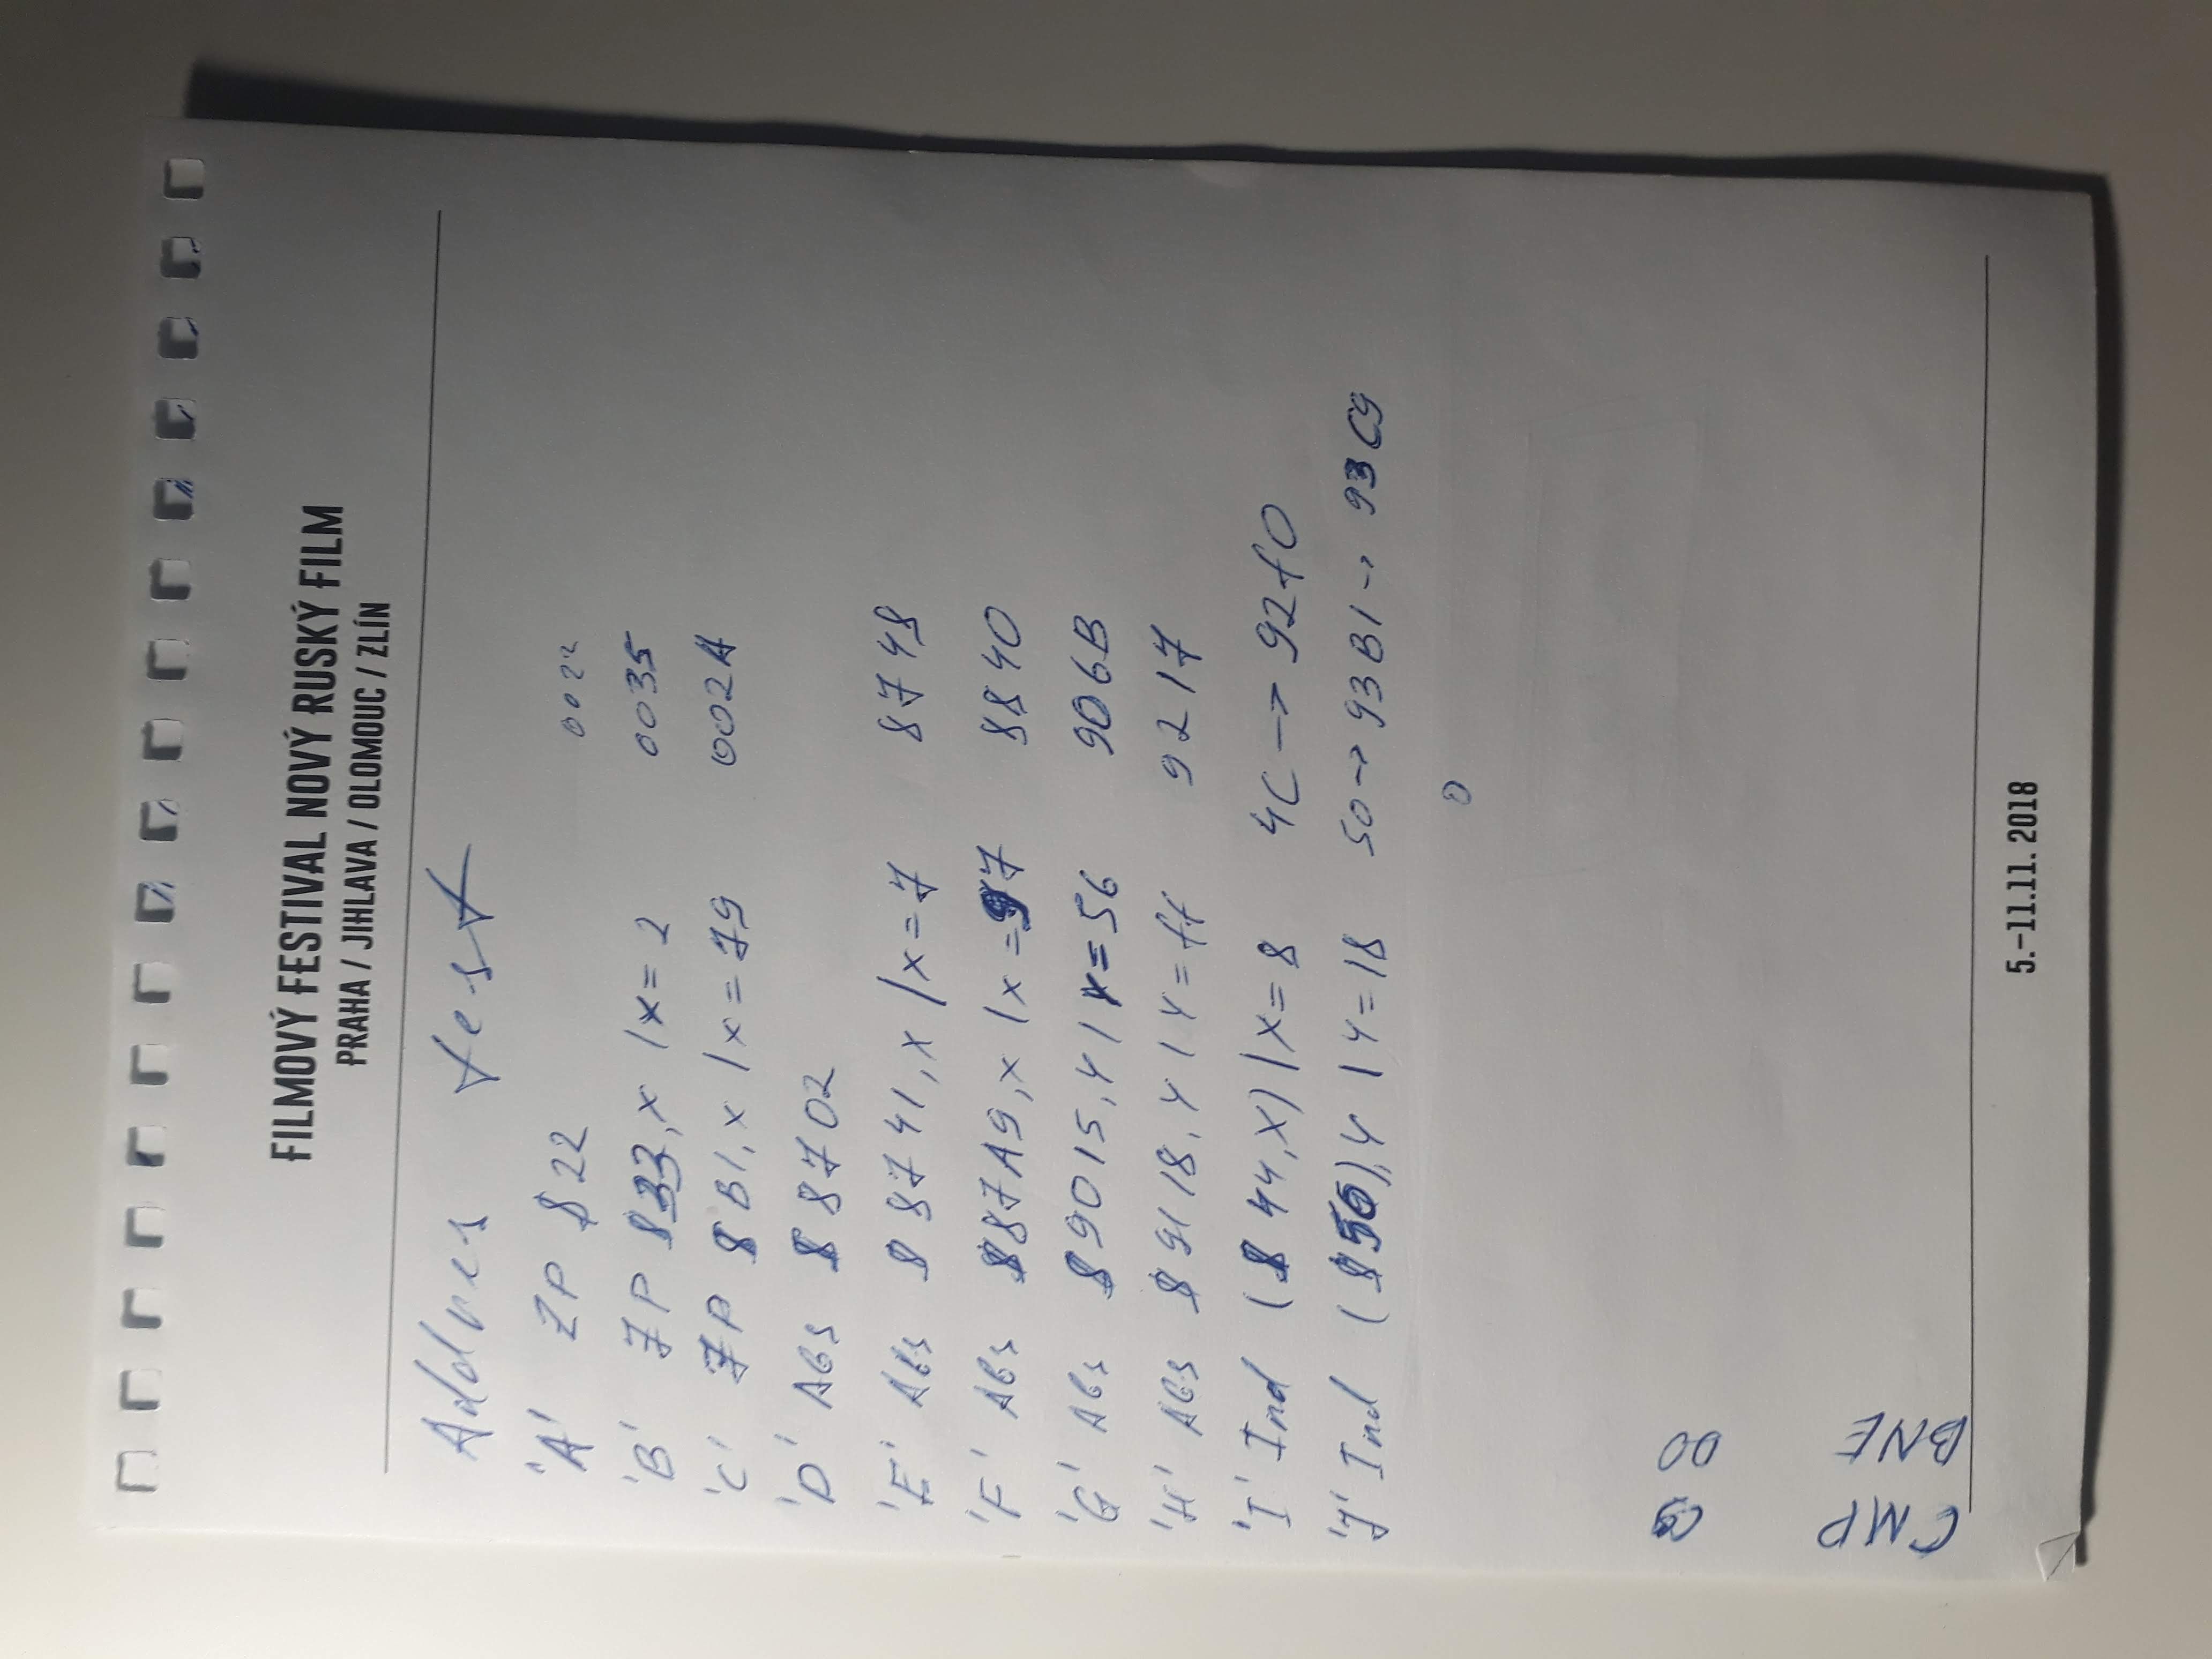 FILMOVÝ FESTIVAL NOVÝ RUSKÝ FILM
PRAHA / JIHLAVA / OLOMOUC / ZLÍN
Addres test
'A' ZP $22 0022
'B' ZP $33,x |x=2 0035
'C' ZP $B1,x |x=79 002A
'D' Abs $8702
'E' Abs $8741,x |x=7 8748
'F' Abs $87A9,x |x=97 8840
'G' Abs $9015,Y |Y=56 906B
'H' Abs $9118,Y |Y=ff 9217
'I' Ind ($44,X) |X=8 4C -> 92f0
'J' Ind ($50),Y |Y=18 50 -> 93B1 -> 93C9
0
CMP C9
BNE D0
5.–11.11. 2018